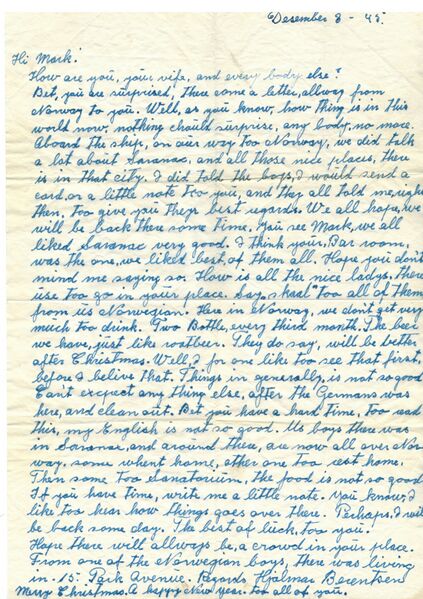 Desember 8 - 45.
Hi Mark!
How are you, your vife, and every body else?
Bet, you are surprised, there came a letter, allway from
Norway to you. Well, as you know, how thing is in this
world now, nothing chould surprise, any body, no more.
Aboard the ship, on our way too Norway, we did talk
a lot about Saranac, and all those nice places, there
is in that city. I did told the boys, I would send a
card, or a little note too you, and they all told me, right
then. Too give you theys best regards. We all hope, we
will be back there some time. You see Mark, we all
liked Saranac very good. I think your, Bar room,
was the one, we liked best, of them all. Hope you don't
mind me saying so. How is all the nice ladys, there
use too go in your place. Say "skaal" too all of them
from us Norwegian. Here in Norway, we don't get very
much too drink. Two Bottle, every third month. The beer
we have, just like rootbeer. They do say, will be better
after Christmas. Well, I for one like too see that first,
before I belive that. Things in generally, is not so good
Cant expect any thing else, after the Germans was
here, and clean out. Bet you have a hard time, too read
this, my English is not so good. Us boys there was
in Saranac, and around there, are now all over Nor
way, some whent home, other one too rest home.
Then some too Sanatorium, the food is not so good
If you have time, write me a little note. You know, I
like too hear how things goes over there. Perhaps, I will
be back some day. The best of luck, too you.
Hope there will allways be, a crowd in your place.
From one of the Norwegian boys, there was living
in - 15 - Park Avenue. Regards Hjalmar Berentsen
Merry Christmas. A happy New year. too all of you.